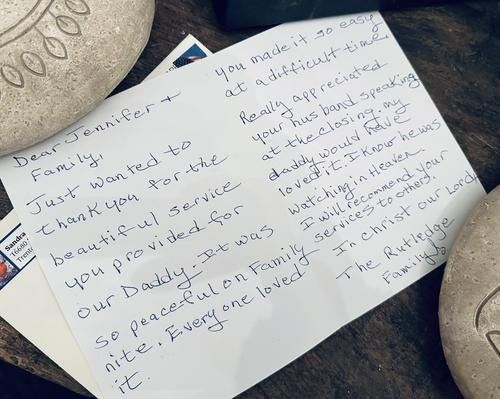 Dear Jennifer +
Family,
Just wanted to
thank you for the
beautiful service
you provided for
our Daddy. It was
so peaceful on Family
nite. Everyone loved
it.
you made it so easy
at a difficult time.
Really appreciated
your husband speaking
at the closing. my
daddy would have
loved it. I know he was
watching in Heaven.
I will recommend your
services to others.
In Christ our Lord,
The Rutledge
Family
Sandra
16080
Trent